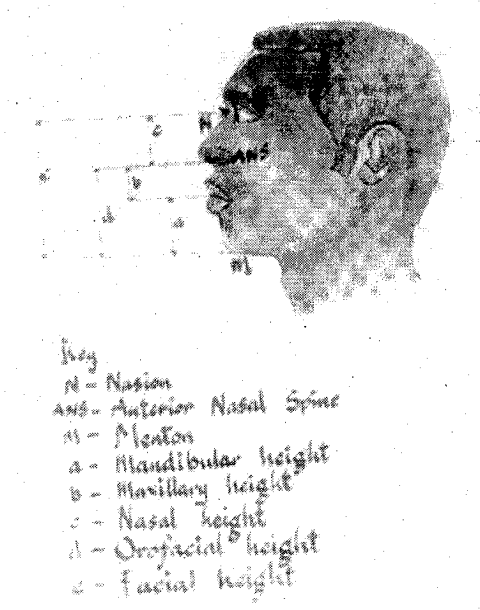 c N
ANS
e b
d a
M
Key
N - Nasion
ANS - Anterior Nasal Spine
M - Menton
a - Mandibular height
b - Maxillary height
c - Nasal height
d - Orofacial height
e - Facial height